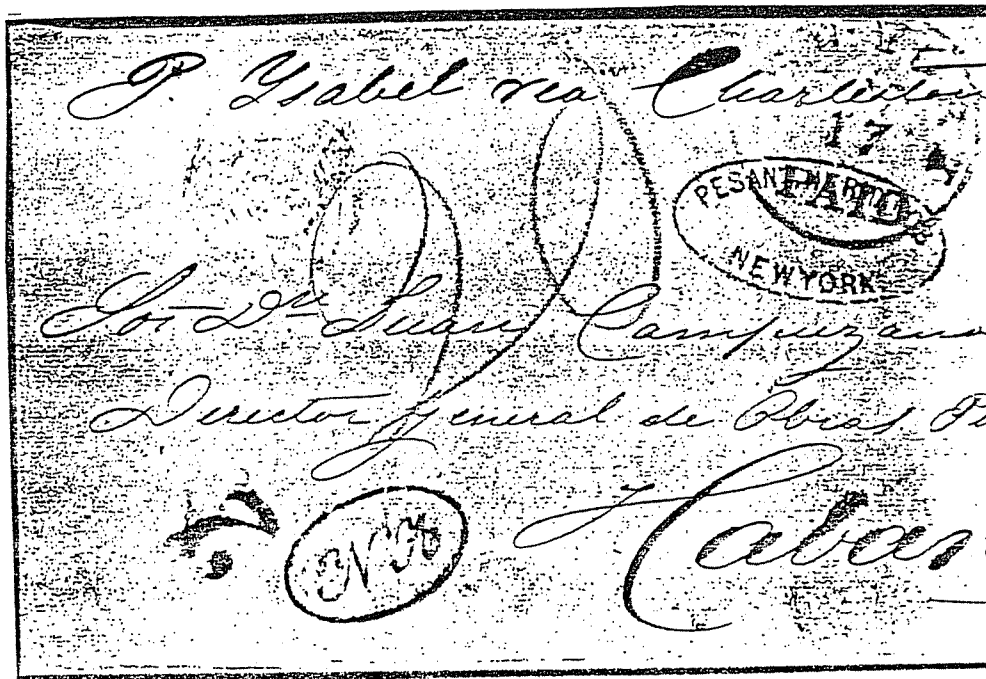 P. Ysabel via Charleston
17
PAID
NEW YORK
Sor Dn Juan Campuzano
Director general de Obras
Haban